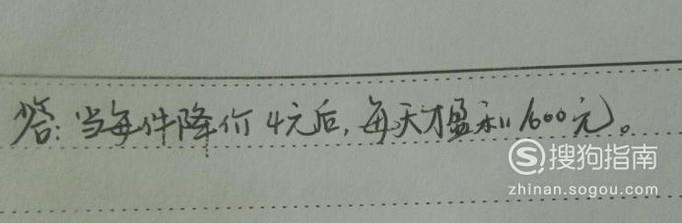 答:当每件降价4元后,每天才盈利1600元。
搜狗指南
zhinan.sogou.com